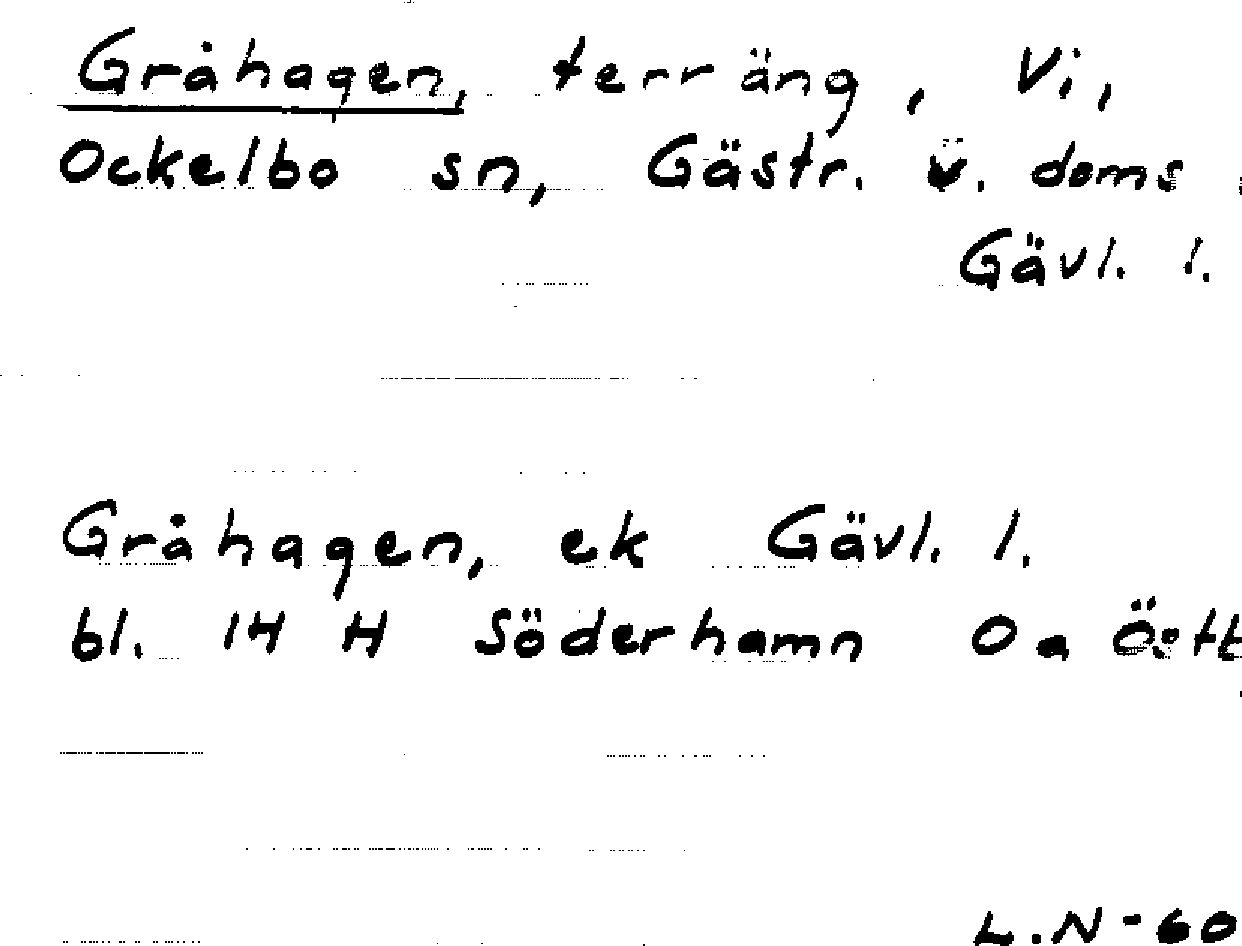 Gråhagen, terräng, Vi,
Ockelbo sn, Gästr. v. doms
Gävl. l.
Gråhagen, ek Gävl. l.
bl. 14 H Söderhamn 0 a
L.N-60